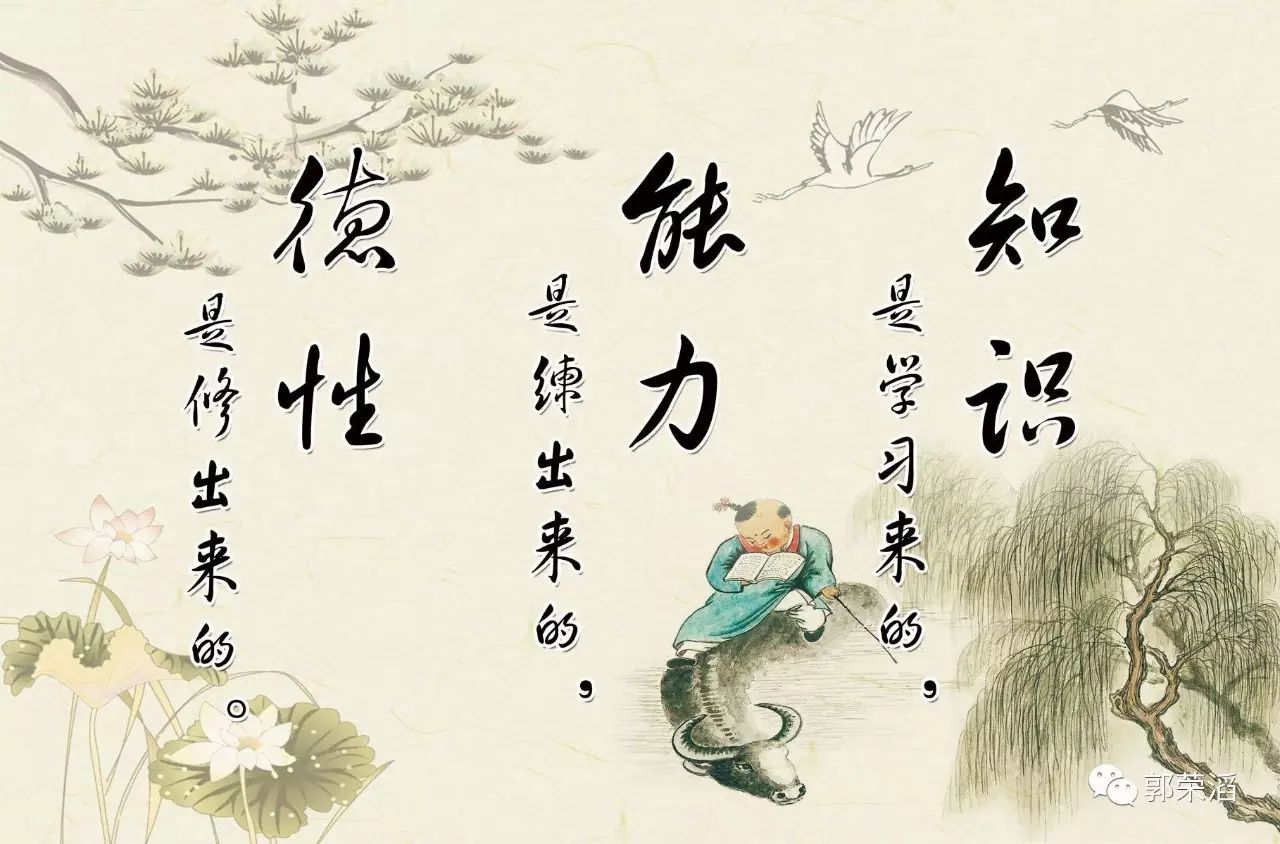 知识
是学习来的，
能力
是练出来的，
德性
是修出来的。
郭荣滔